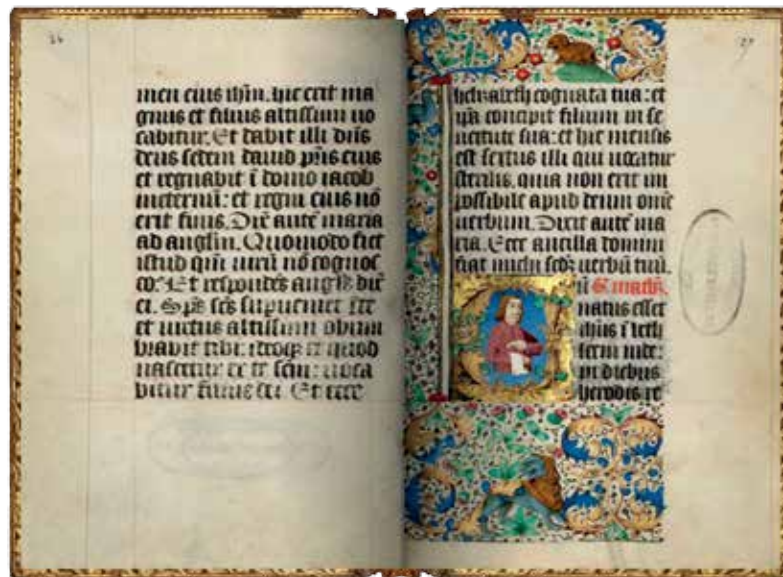 26
men eius ihm. hic erit ma
gnus et filius altissimi uo
cabitur. Et dabit illi dñs
deus sedem dauid pr̃is eius
et regnabit ĩ domo iacob
ineternũ: et regni eius nõ
erit finis. Dix̃ autẽ maria
ad anglm̃. Quomodo fiet
istud qm̃ uirũ nõ cognos
co: Et respondẽs angls̃ dix̃
ei. Sp̃s sc̃s supueniet ĩ te
et uirtus altissimi obum
brabit tibi: ideoqz et quod
nascetur ex te scm̃: uoca
bitur filius dei. Et ecce
27
helizabeth cognata tua: et
ip̃a concipit filium in se
nectute sua: et hic mensis
est sextus illi qui uocatur
sterilis. quia non erit im
possibile apud deum om̃e
uerbum. Dixit autẽ ma
ria. Ecce ancilla domini
fiat michi scdz̃ uerbũ tuũ.
natus esset
ihũs ĩ beth
leem iude:
in diebus
herodis re